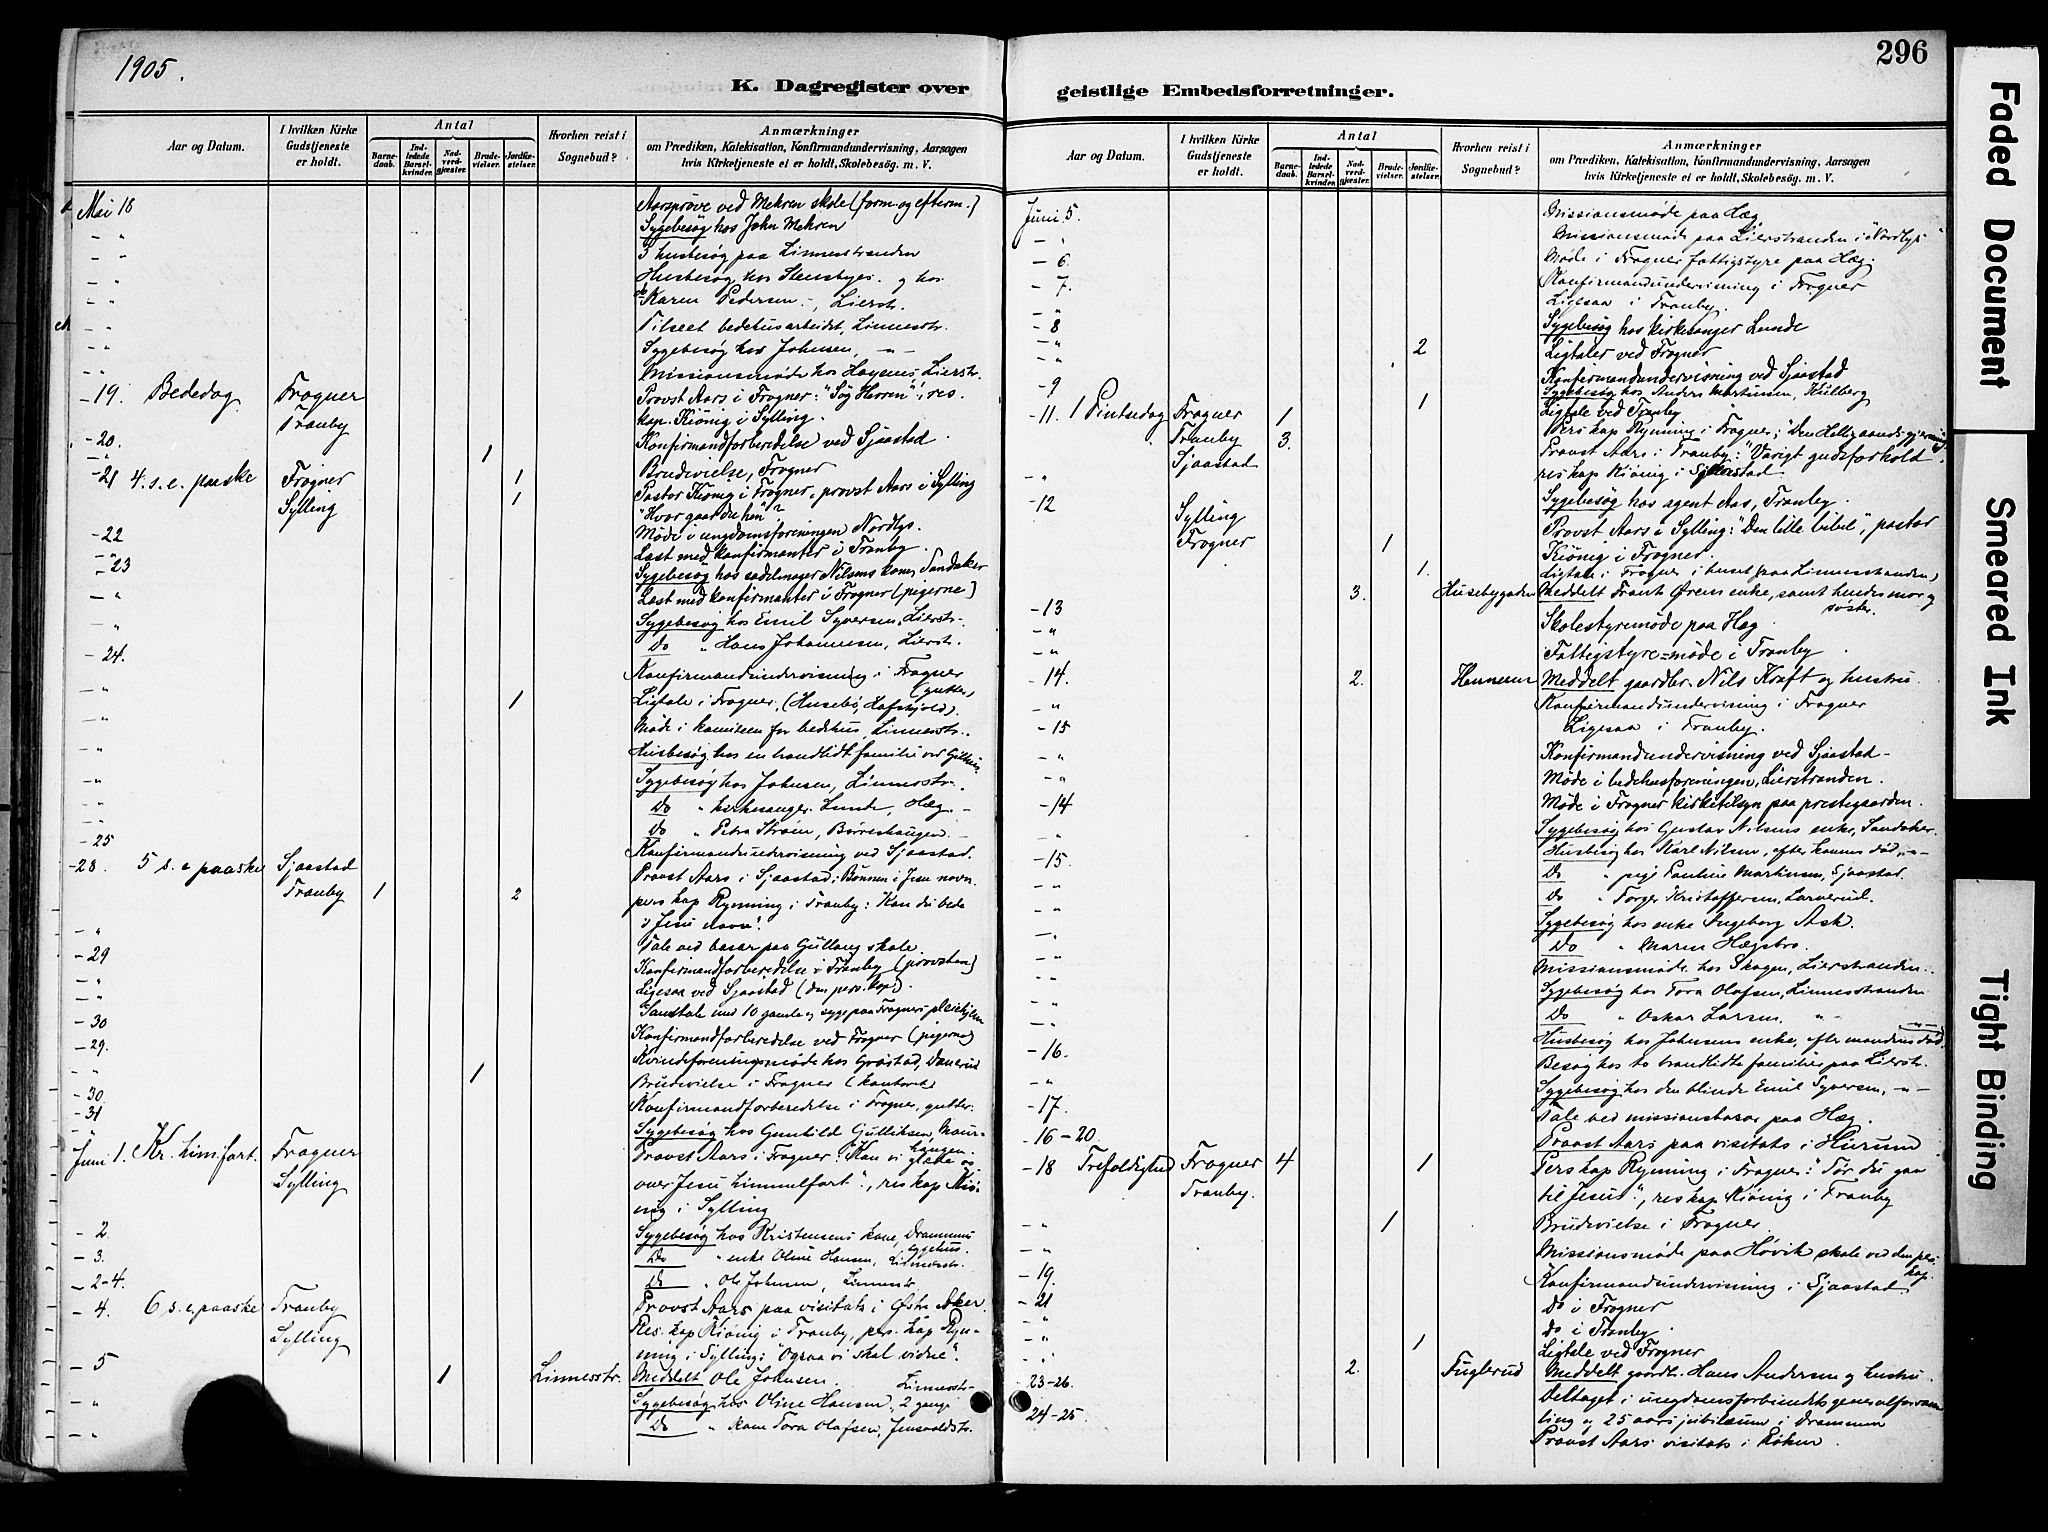 1905.
296
K. Dagregister over
geistlige Embedsforretninger.
Aar og Datum.
I hvilken Kirke Gudstjeneste er holdt.
Antal
Barnedaab.
Indledede Barselkvinder.
Nadverdgjæster.
Brudevielser.
Jordfæstelser.
Hvorhen reist i Sognebud?
Anmærkninger
om Prædiken, Katekisation, Konfirmandundervisning, Aarsagen
hvis Kirketjeneste ei er holdt, Skolebesög. m. V.
Mai 18 Aarspröve ved Mehren skole (form. og efterm.)
- " Sygebesög hos John Mehren
- " 3 husbesög paa Linnesstranden
- " Husbesög hos Stensbyes og hos
- " Karen Pedersen, Lierstr.
- " Tilseet bedehusarbeidet, Linnesstr.
- " Sygebesög hos Johnsen, - " -
- " Missionsmöde hos Hoysens, Lierstr.
- 19. Bededag Frogner Provst Aars i Frogner: "Søg Herren"; res.
Tranby kap. Kiönig i Sylling.
- 20. Konfirmandforberedelse ved Sjaastad.
- " 1 Brudevielse, Frogner
- 21 4. s. e. paaske Frogner 1 Pastor Kiönig i Frogner, provst Aars i Sylling
Sylling 1 "Hvor gaar du hen"?
- 22 Möde i ungdomsforeningen Nordlys.
- " Læst med konfirmanter i Tranby
- 23 Sygebesög hos sadelmager Nilsens kone, Sandaker
- " Læst med konfirmanter i Frogner (pigerne)
- " Sygebesög hos Emil Syversen, Lierstr.
- " Do " Hans Johannesen, Lierstr.
- 24. Konfirmandundervisning i Frogner (gutter)
- " 1 Ligtale i Frogner, (Husebö, Hafskjold).
- " Möde i komiteen for bedehus, Linnesstr.
- " Husbesög hos en brandlidt familie ved Gilhus.
- " Sygebesög hos Johnsen, Linnesstr.
- " Do " kirkesanger Lunde, Hæg.
- " Do " Petra Ström, Börreshaugen.
- 25 Konfirmandundervisning ved Sjaastad.
- 28. 5 s. e paaske Sjaastad Provst Aars i Sjaastad: Bönnen i Jesu navn.
Tranby 1 2 pers kap Rynning i Tranby: "Kan du bede
i Jesu navn".
- " Tale ved basar paa Gullaug skole.
- 29 Konfirmandforberedelse i Tranby (provsten)
- " Ligesaa ved Sjaastad (den pers. kap).
- " Samtale med 10 gamle og syge paa Frogners pleiehjem
- 30 Konfirmandforberedelse ved Frogner (pigerne)
- 29. Kvindeforeningsmöde hos Gröstad,
- " 1 Brudevielse i Frogner (kontoret)
- 30 Konfirmandforberedelse i Frogner, gutter.
- 31 Sygebesög hos Gunhild Gulliksen, Maurhaugen.
Juni 1. Kr. himfart. Frogner Provst Aars i Frogner: "Kan vi glæde os
Sylling over Jesu himmelfart", res kap Kiönig
i Sylling
- 2. Sygebesög hos Kristensens kone, Drammens sygehus.
- 3. Do " enke Oline Hansen, Linnesstr.
- 2-4. Do " Ole Johnsen, Linnesstr.
Provst Aars paa visitats i Østre Aker.
- 4. 6 s. e. paaske Tranby Res. kap Kiönig i Tranby, pers. kap Rynning
Sylling i Sylling: "Ogsaa vi skal vidne".
- 5 1 Linnesstr. Meddelt Ole Johnsen.
- " Sygebesög hos Oline Hansen, 2 gange Linnesstr.
- " Do " kone Tora Olafsen, Jensvoldstr.
Juni 5. Missionsmöde paa Hæg
- " Missionsmöde paa Lierstranden i "Nordlys"
- 6 Möde i Frogner fattigstyre paa Hæg.
- 7. Konfirmandundervisning i Frogner
- " Ligesaa i Tranby.
- 8 Sygebesög hos kirkesanger Lunde
- " 2 Ligtaler ved Frogner
- " Konfirmandundervisning ved Sjaastad
- 9 Sygebesög hos Anders Martinsen, Kulberg
1 Ligtale ved Tranby
- 11. 1 Pintsedag Frogner 1 Pers kap Rynning i Frogner; "Den Helligaands gjerning"
Tranby 3. Provst Aars i Tranby: "Varigt gudsforhold"
Sjaastad res kap Kiönig i Sjaastad
- " Sygebesög hos agent Aas, Tranby.
- 12 Sylling Provst Aars i Sylling: "Den lille bibel", pastor
Frogner 1 Kiönig i Frogner.
1. Ligtale i Frogner i huset (paa Linnesstranden)
- 13 3. Husebygaden Meddelt Frantz Ørens enke, samt hendes mor og söster.
- " Skolestyremöde paa Hæg
- " Fattigstyre=möde i Tranby
- 14. 2. Hennerun Meddelt gaardbr. Nils Kraft og hustru.
- " Konfirmandundervisning i Frogner
- 15 Ligesaa i Tranby.
- " Konfirmandundervisning ved Sjaastad
- " Möde i bedehusforeningen, Lierstranden.
- 14 Möde i Frogner kirketilsyn paa prestegaarden.
- " Sygebesög hos Gustav Nilsens enke, Sandaker.
- 15. Husbesög hos Karl Nilsen, efter konens död, - " -
- " Do " pige Pauline Martinsen, Sjaastad.
- " Do " Torger Kristoffersen, Larverud.
- " Sygebesög hos enke Ingeborg Ask.
- " Do " Maren Hægsbro.
- " Missionsmöde hos Skogen, Lierstranden.
- " Sygebesög hos Tora Olafsen, Linnesstranden
- " Do " Oskar Larsen. - " -
- " Husbesög hos Johnsens enke, efter mandens död, - " -
- 16. Besög hos to brandlidte familier paa Lierstr.
- " Sygebesög hos den blinde Emil Syversen, - " -
- 17. Tale ved missionsbasar paa Hæg.
- 16-20. Provst Aars paa visitats i Hurum
- 18 Trefoldighed Frogner 4 1 Pers kap Rynning i Frogner: "Tör du gaa
Tranby. til Jesus", res kap Kiönig i Tranby
- " 1 Brudevielse i Frogner
- " Missionsmöde paa Hövik skole ved den pers. kap.
- 19. Konfirmandundervisning i Sjaastad
- 21 Do i Frogner
- " Do i Tranby
- " 1 Ligtale ved Frogner
- " 2. Fuglerud Meddelt gaardbr. Hans Andersen og hustru.
23-26. Deltaget i ungdomsforbundets generalforsamling
og 25 aars jubilæum i Drammen
24-25. Provst Aars visitats i Röken.
Faded Document
Smeared Ink
Tight Binding